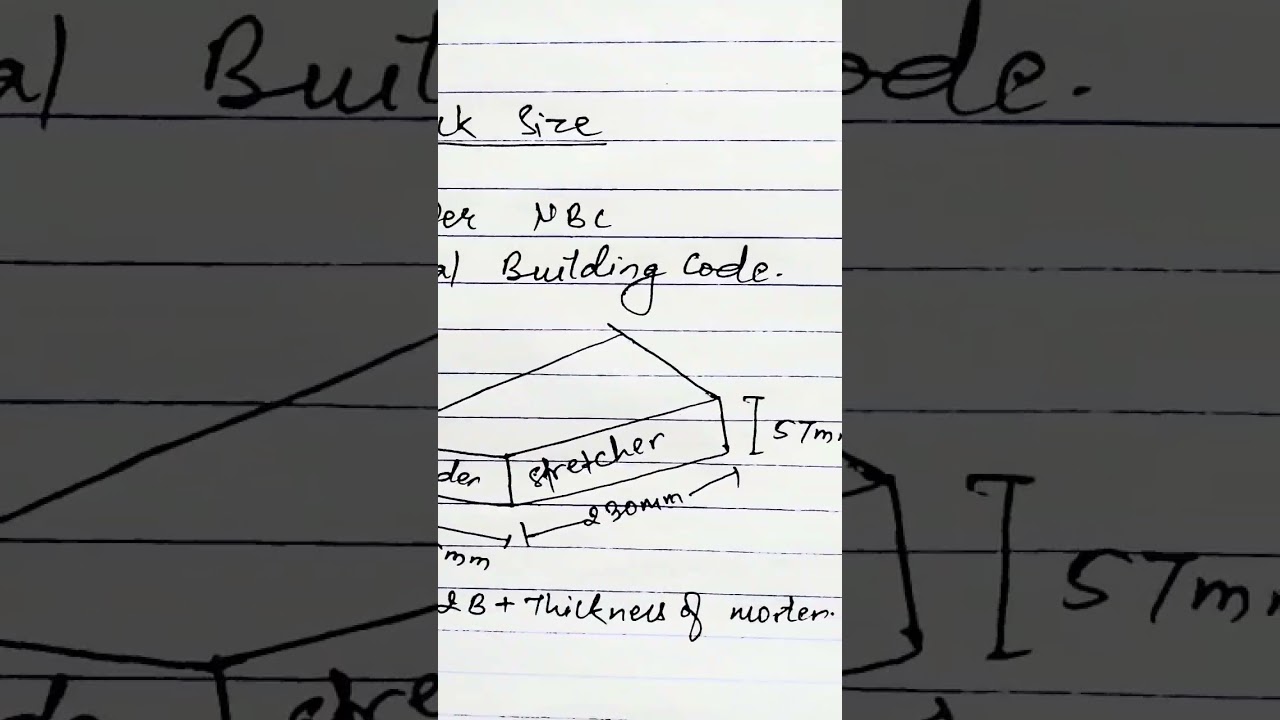 ck Size
per NBC
al Building Code.
stretcher
57mm
der
230mm
mm
2B + Thickness of morter.